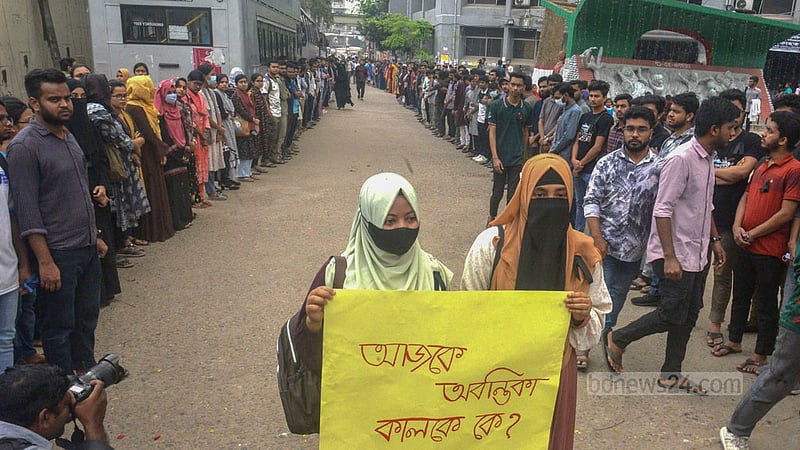 আজকে
অবন্তিকা
কালকে কে?
bdnews24.com